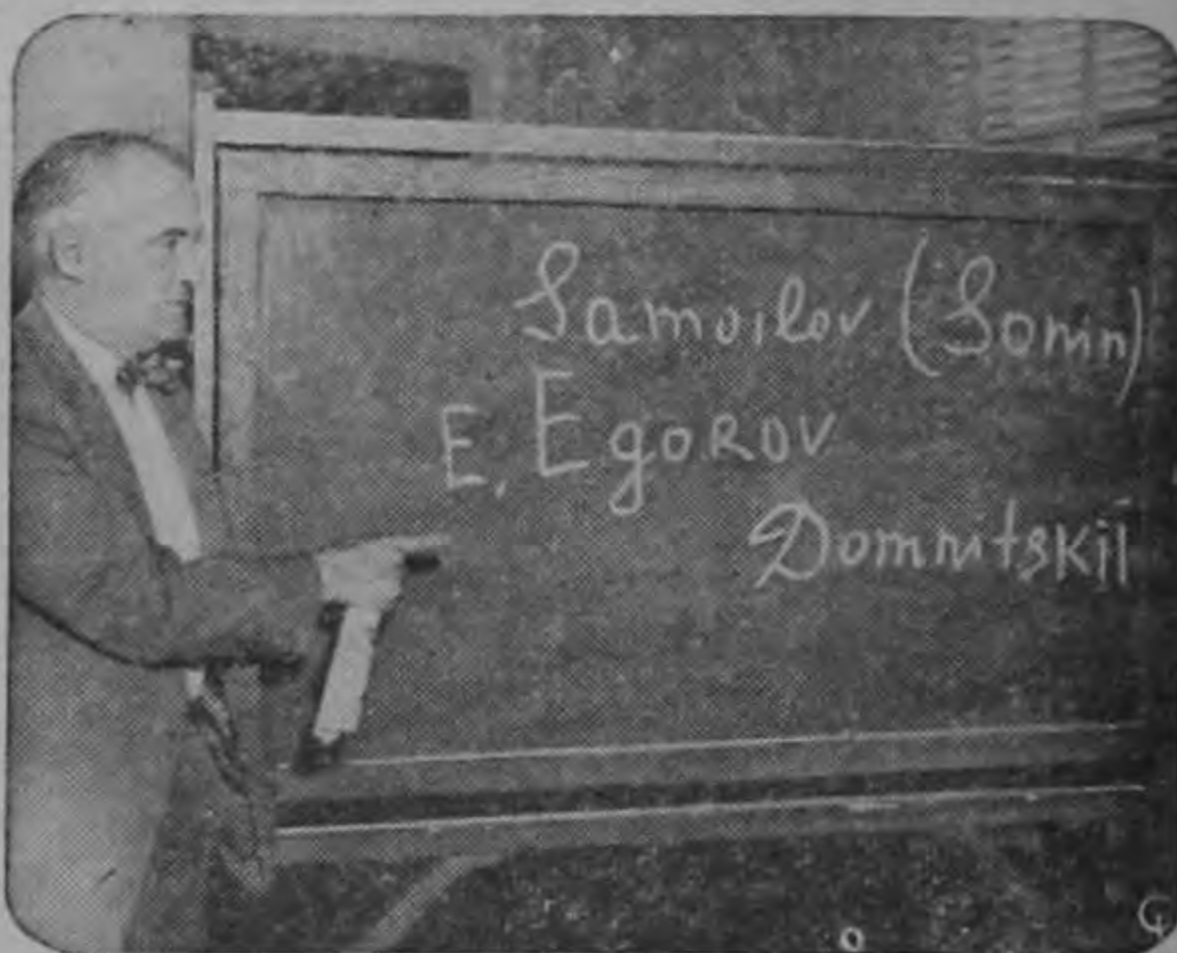 Samoilov (Sonin)
E. Egorov
Domnitskii